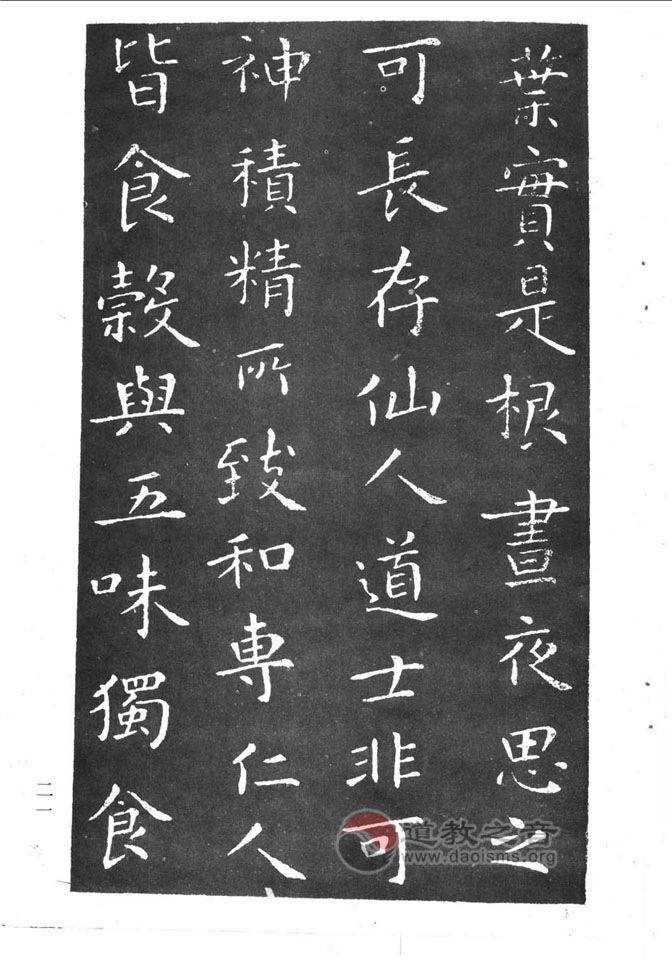 葉實是根晝夜思之
可長存仙人道士非可
神積精所致和專仁人
皆食穀與五味獨食
二一
道教之音
www.daoisms.org